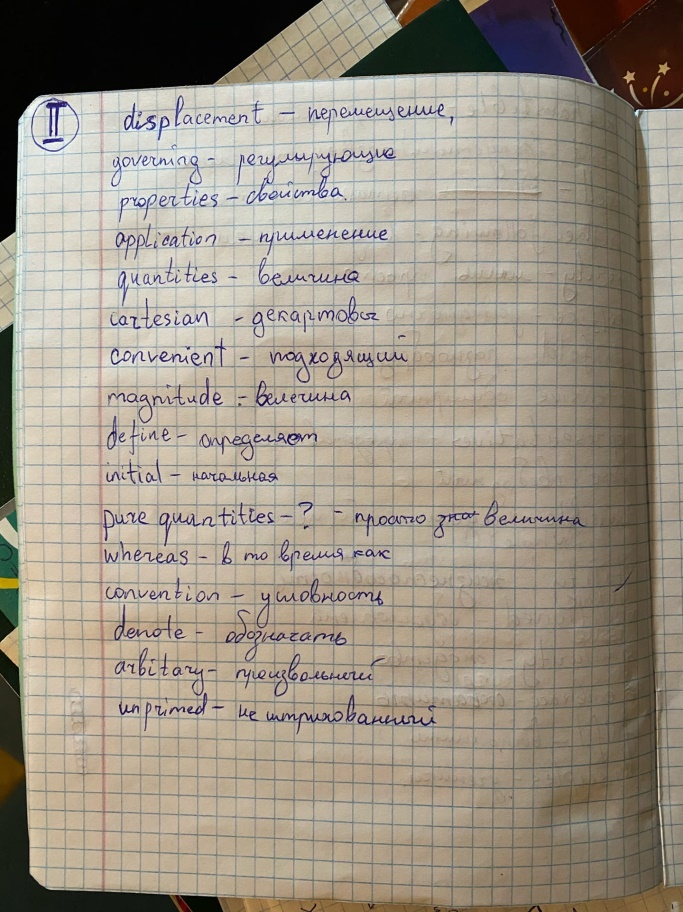 II
displacement – перемещение,
governing – регулирующие
properties – свойства.
application – применение
quantities – величина
cartesian – декартовы
convenient – подходящий
magnitude – велечина
define – определяет
initial – начальная
pure quantities – ? – просто величина
whereas – в то время как
convention – условность
denote – обозначать
arbitary – произвольный
unprimed – не штрихованный